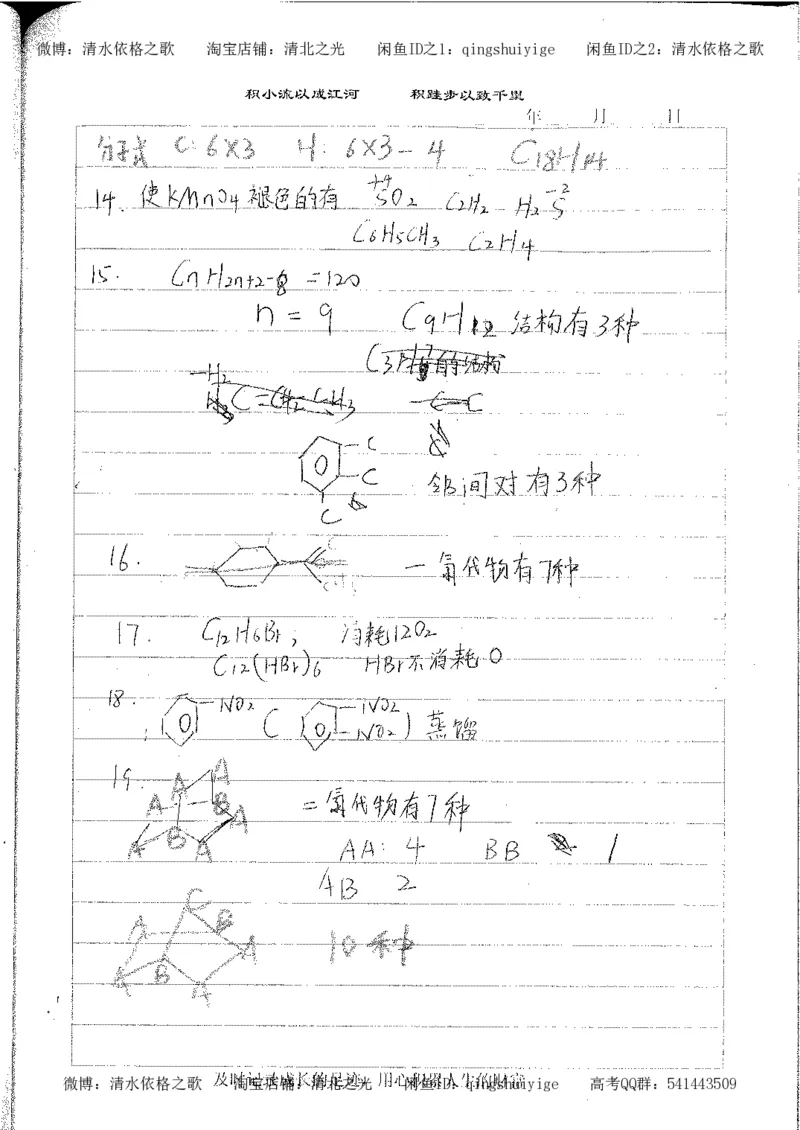 微博：清水依格之歌 淘宝店铺：清北之光 闲鱼ID之1：qingshuiyige 闲鱼ID之2：清水依格之歌
积小流以成江河 积跬步以致千里
年 月 日
分子式 C: 6×3 H: 6×3-4 C18H14
14. 使KMnO4褪色的有 +4 SO2 C2H2 H2S -2
C6H5CH3 C2H4
15. CnH2n+2-8 =120
n = 9 C9H12 结构有3种
C
C
C
邻间对有3种
16. 一氯代物有7种
17. C12H6Br6 消耗12O2
C12(HBr)6 HBr不消耗O
18. NO2 ( NO2 NO2 ) 蒸馏
19. A A A B A B A A
二氯代物有7种
AA: 4 BB 1
AB 2
C A B A A B A
10种
微博：清水依格之歌 淘宝店铺：清北之光 闲鱼ID：qingshuiyige 高考QQ群：541443509